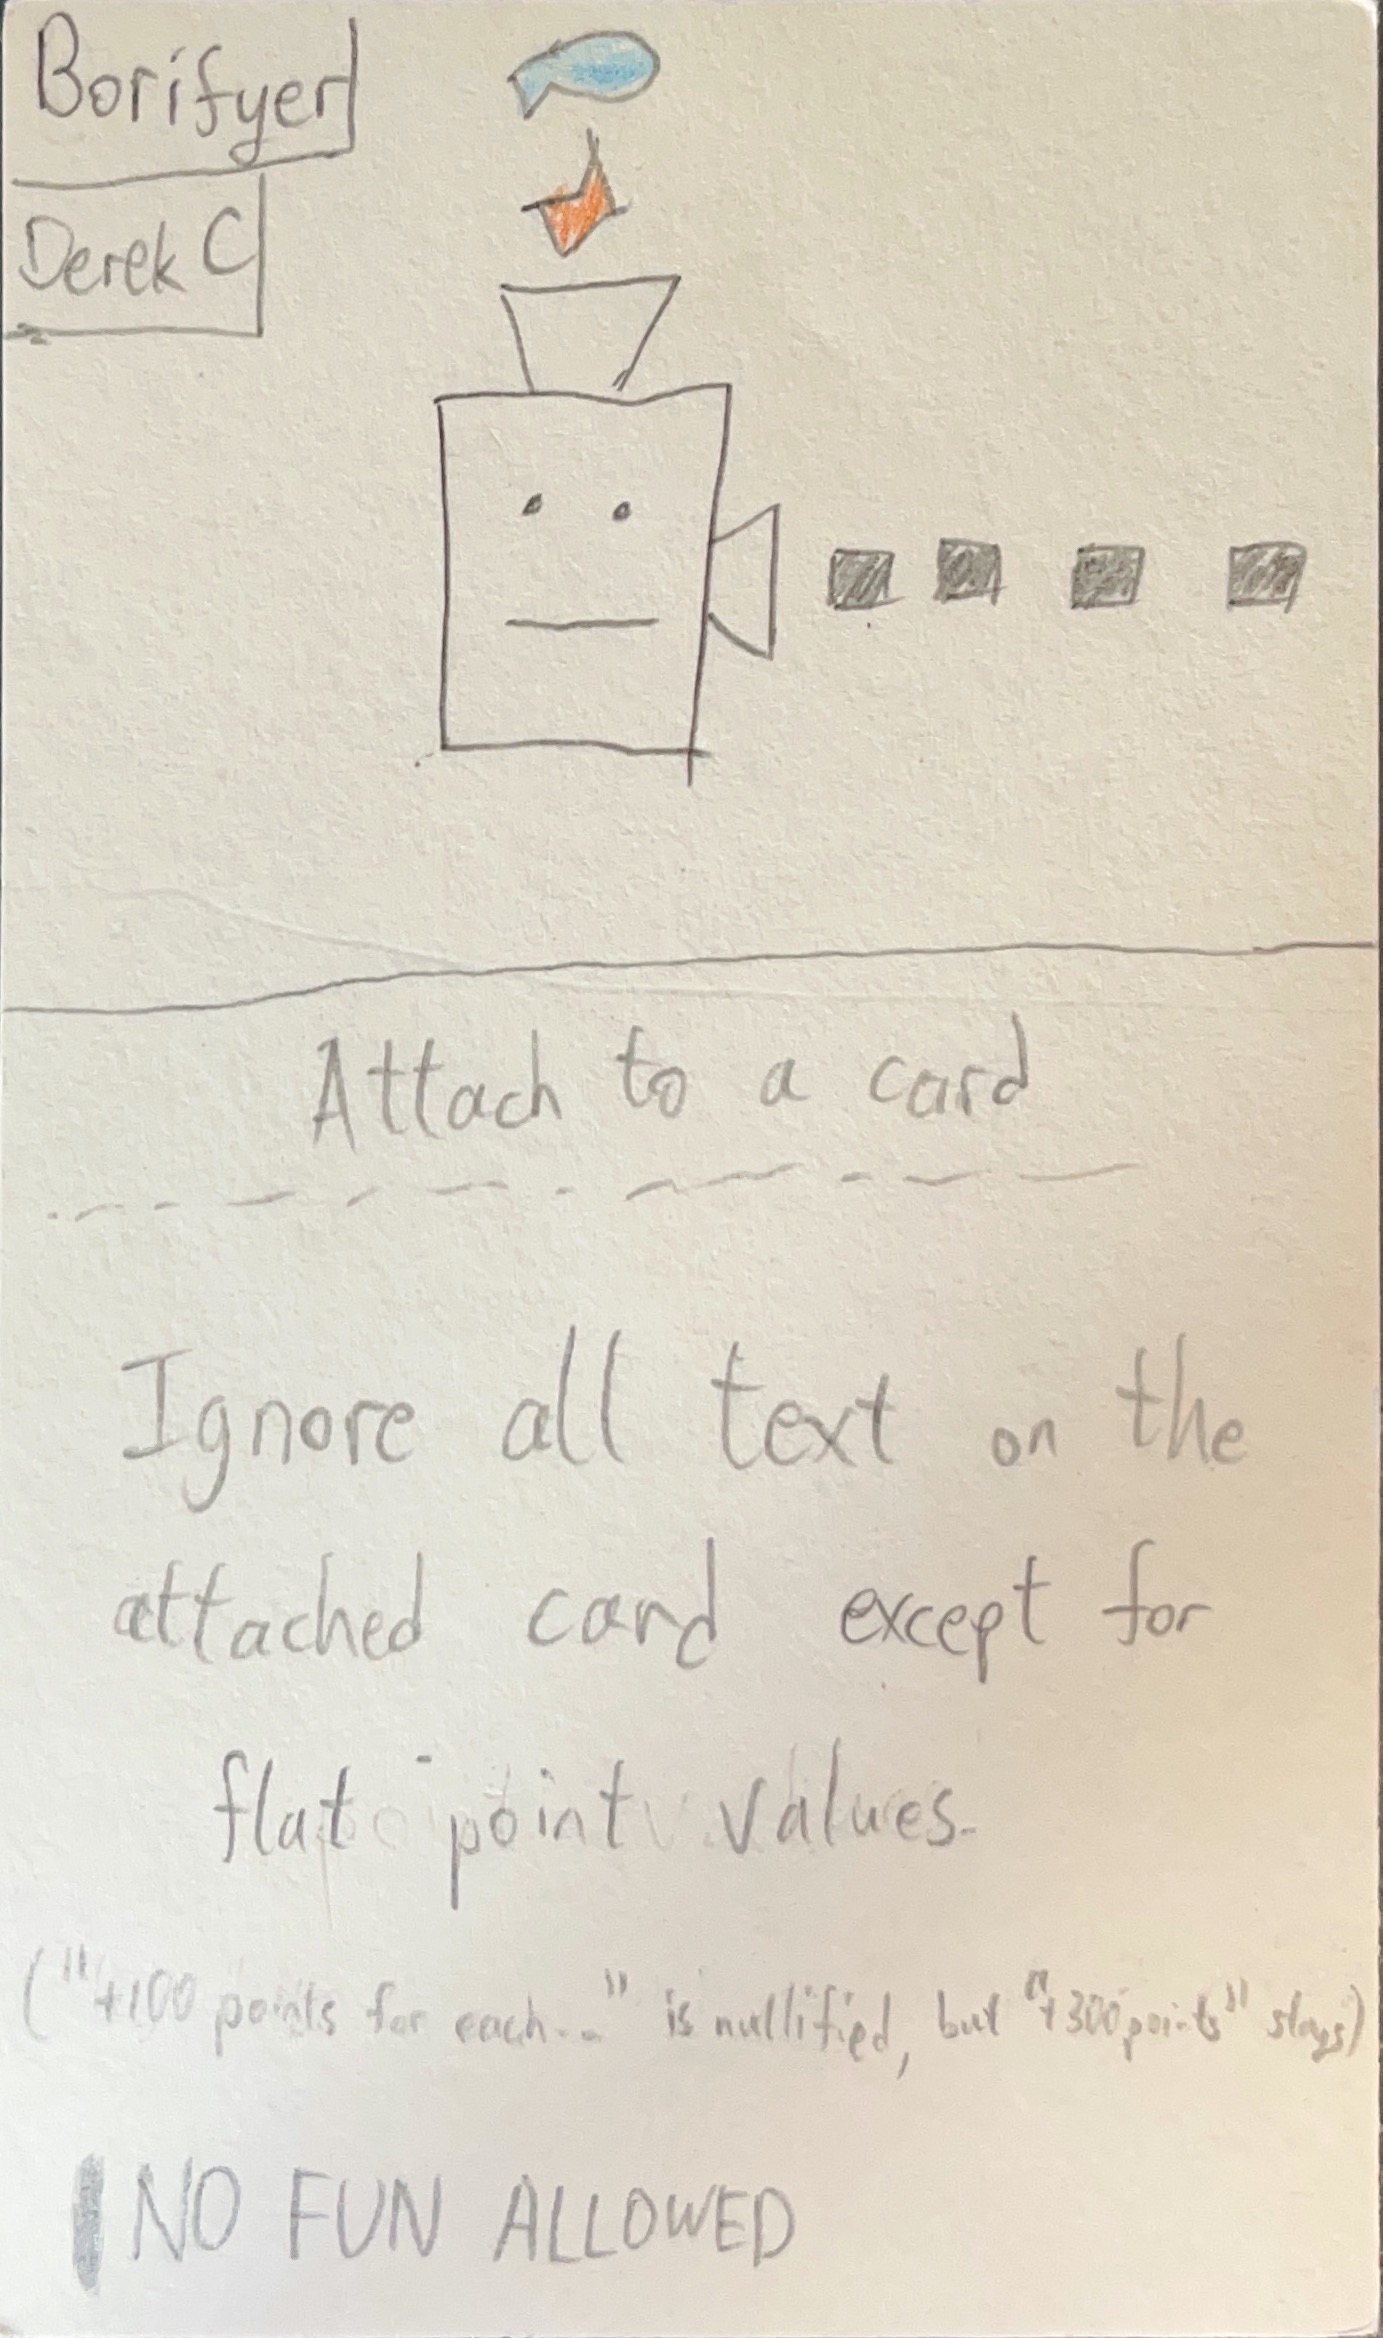 Borifyer
Derek C
Attach to a card
Ignore all text on the
attached card except for
flat point values.
("+100 points for each..." is nullified, but "+300 points" stays)
NO FUN ALLOWED